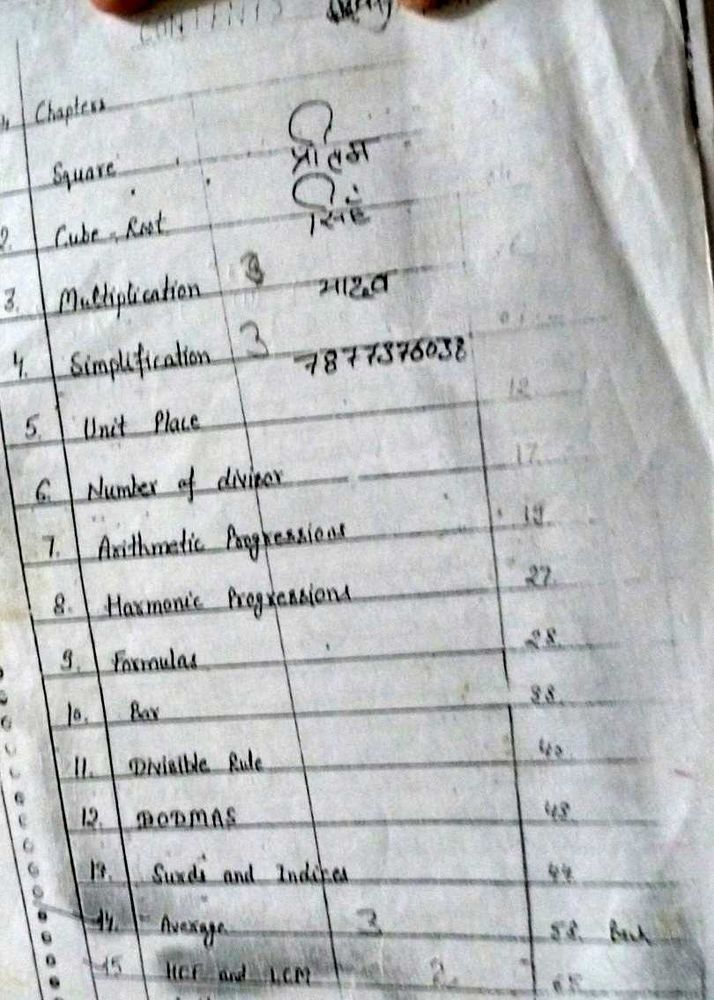 CONTENTS
Chapters
Square
प्रीतम
2. Cube Root
सिंह
3. Multiplication 3
यादव
4. Simplification 3 7877376038
5. Unit Place 12
6. Number of divisor 17
7. Arithmetic Progressions 19
8. Harmonic Progressions 27
9. Formulas 28
10. Bar 38
11. Divisible Rule 40
12. BODMAS 43
13. Surds and Indices 44
14. Average 3 58
15 HCF and LCM 2 65